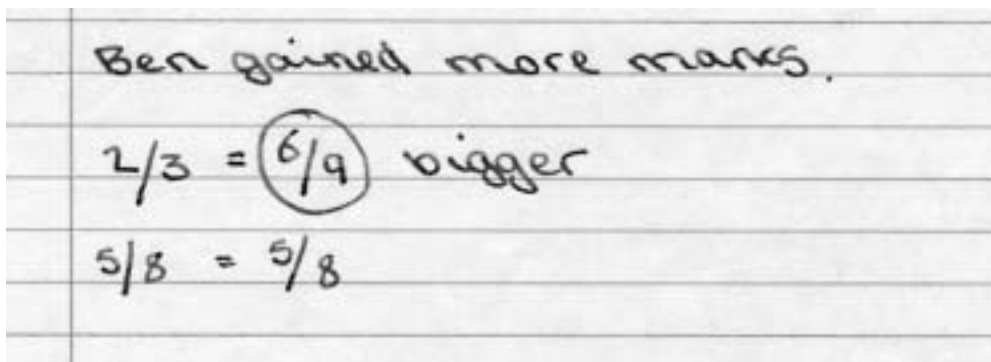 Ben gained more marks.
2/3 = 6/9 bigger
5/8 = 5/8